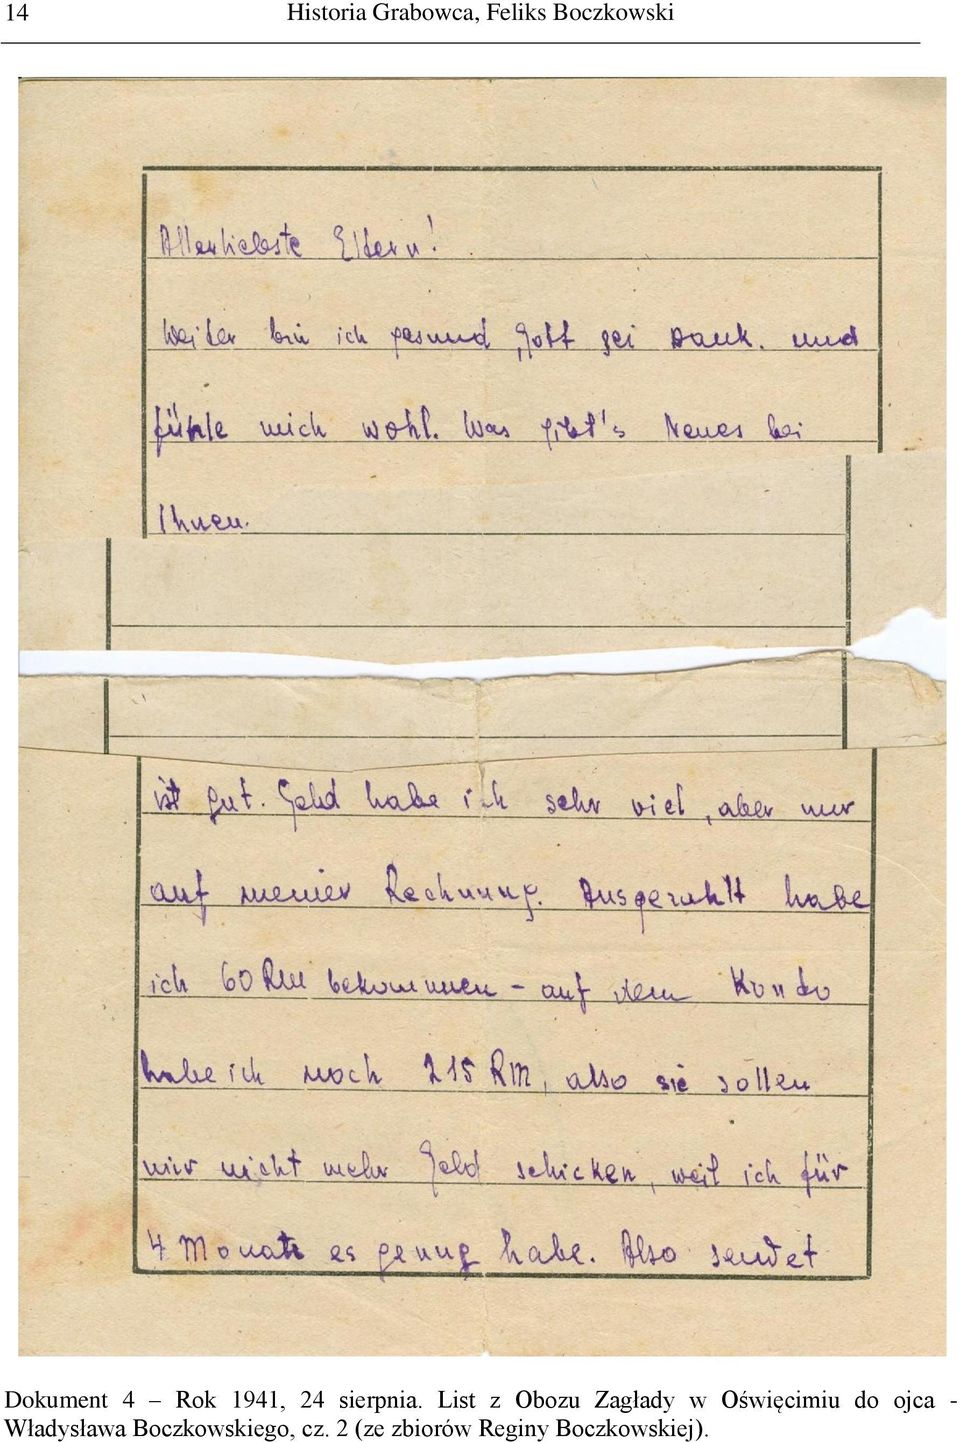 14 Historia Grabowca, Feliks Boczkowski
Allerliebste Eltern!
Weiter bin ich gesund, Gott sei Dank. und
fühle mich wohl. Was gibt's Neues bei
Ihnen.
ist gut. Geld habe ich sehr viel, aber nur
auf meiner Rechnung. Ausgezahlt habe
ich 60 RM bekommen - auf dem Kondo
habe ich noch 215 RM, also sie sollen
mir nicht mehr Geld schicken, weil ich für
4 Monate es genug habe. Also sendet
Dokument 4 – Rok 1941, 24 sierpnia. List z Obozu Zagłady w Oświęcimiu do ojca -
Władysława Boczkowskiego, cz. 2 (ze zbiorów Reginy Boczkowskiej).